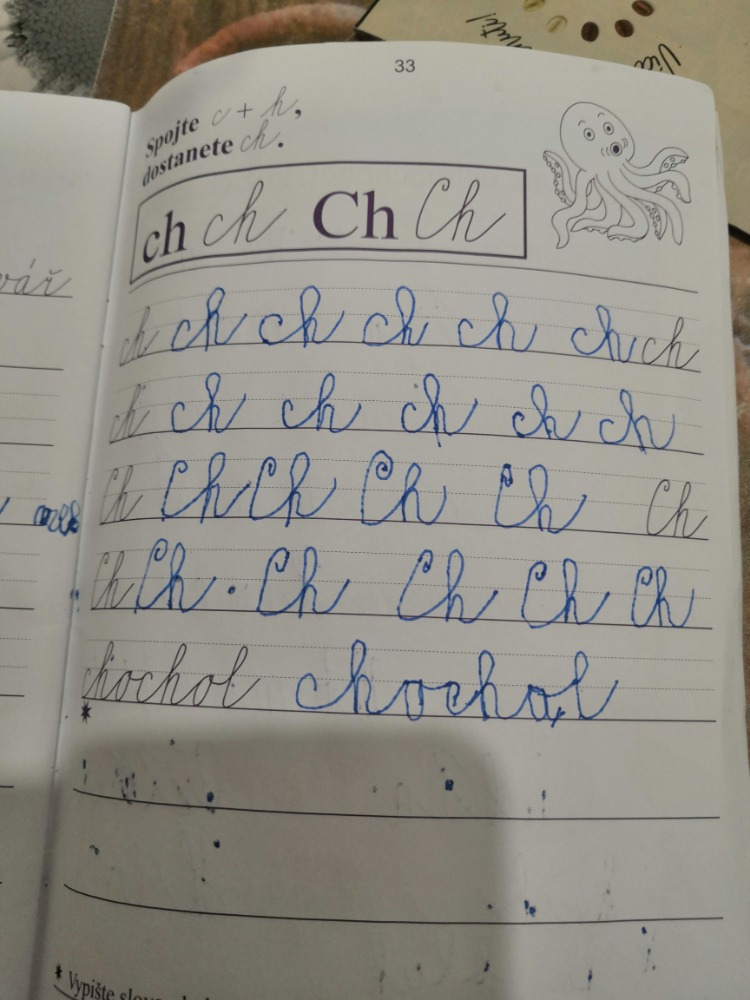 33
Spojte c + h,
dostanete ch.
ch ch Ch Ch
vář
ch ch ch ch ch ch ch
ch ch ch ch ch ch
Ch Ch Ch Ch Ch Ch
Ch Ch . Ch Ch Ch Ch
chochol chochol
*
* Vypište